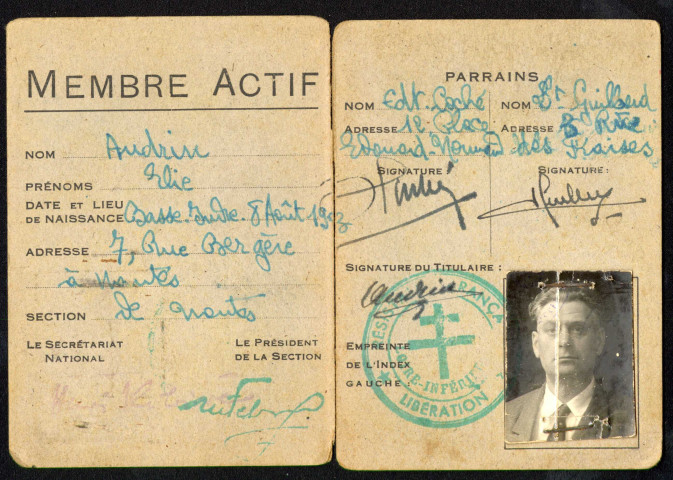 MEMBRE ACTIF
NOM Audrin
PRÉNOMS Elie
DATE ET LIEU
DE NAISSANCE Basse-Indre 8 Août 1903
ADRESSE 7, Rue Bergère
à Nantes
SECTION de Nantes
LE SECRÉTARIAT
NATIONAL
LE PRÉSIDENT
DE LA SECTION
PARRAINS
NOM Edt. Loché
ADRESSE 12 Place
Edouard Normand
NOM Et Guillard
ADRESSE 8 Rue
des Fraises
SIGNATURE
SIGNATURE :
SIGNATURE DU TITULAIRE :
Audrin
EMPREINTE
DE L'INDEX
GAUCHE :
LIBÉRATION